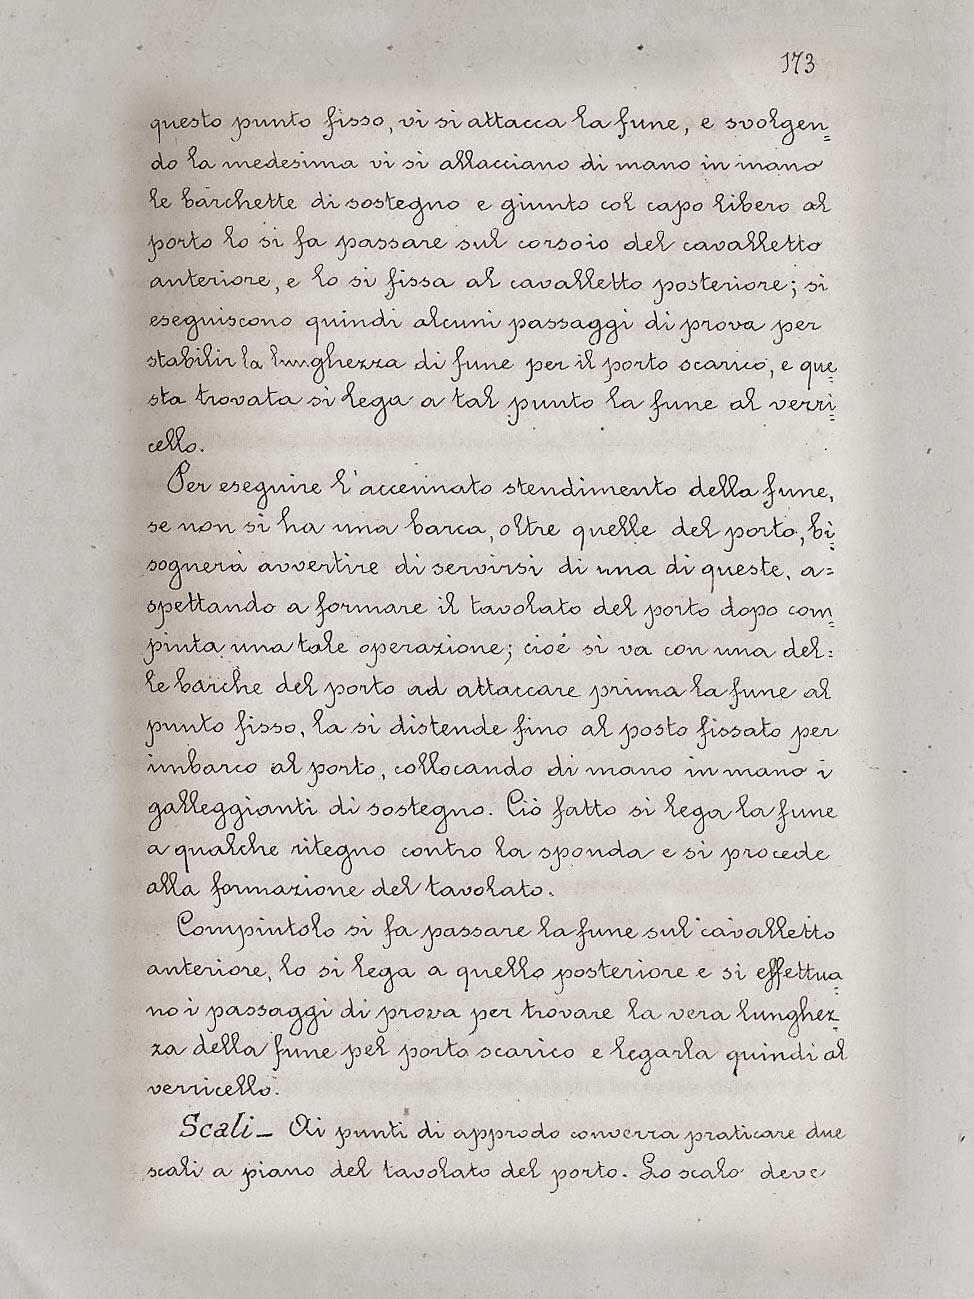 173
questo punto fisso, vi si attacca la fune, e svolgen=
do la medesima vi si allacciano di mano in mano
le barchette di sostegno e giunto col capo libero al
porto lo si fa passare sul corsoio del cavalletto
anteriore, e lo si fissa al cavalletto posteriore; si
eseguiscono quindi alcuni passaggi di prova per
stabilir la lunghezza di fune per il porto scarico, e que=
sta trovata si lega a tal punto la fune al verri=
cello.
Per eseguire l'accennato stendimento della fune,
se non si ha una barca, oltre quelle del porto, bi=
sognerà avvertire di servirsi di una di queste, a=
spettando a formare il tavolato del porto dopo com=
piuta una tale operazione; cioé si va con una del=
le barche del porto ad attaccare prima la fune al
punto fisso, la si distende fino al posto fissato per
imbarco al porto, collocando di mano in mano i
galleggianti di sostegno. Ciò fatto si lega la fune
a qualche ritegno contro la sponda e si procede
alla formazione del tavolato.
Compiutolo si fa passare la fune sul cavalletto
anteriore, lo si lega a quello posteriore e si effettua=
no i passaggi di prova per trovare la vera lunghez=
za della fune pel porto scarico e legarla quindi al
verricello.
Scali_ Ai punti di approdo converrà praticare due
scali a piano del tavolato del porto. Lo scalo deve